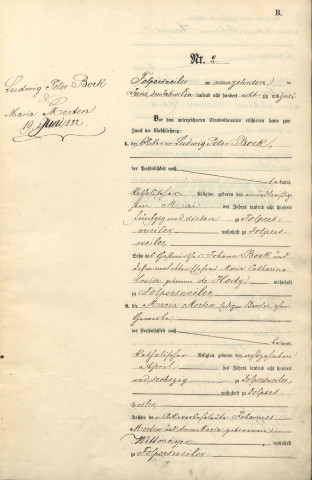 B.
Nr. 2
Ludwig Peter Bock
&
Maria Merten
19 Juni 1882
Folpersweiler am neunzehnten
Juni tausend acht hundert acht zig und zwei
Vor dem unterzeichneten Standesbeamten erschienen heute zum
Zweck der Eheschließung:
1. der Ludwig Peter Bock,
der Persönlichkeit nach
kannt,
katholischer Religion, geboren den
Mai des Jahres tausend acht hundert
fünfzig und sieben zu Folpers-
weiler, wohnhaft zu Folpers-
weiler
Sohn des Johann Bock und
Maria Catharina
Louise, geborene de Hody,
wohnhaft
zu Folpersweiler
2. die Maria Merten, ohne
Gewerbe
der Persönlichkeit nach
kannt,
katholischer Religion, geboren den
April des Jahres tausend acht hundert
und sechszig zu Folpersweiler,
wohnhaft zu Folpers-
weiler,
Tochter des Johannes
Merten und Anna Maria, geborene
Wittmeyer wohnhaft
zu Folpersweiler